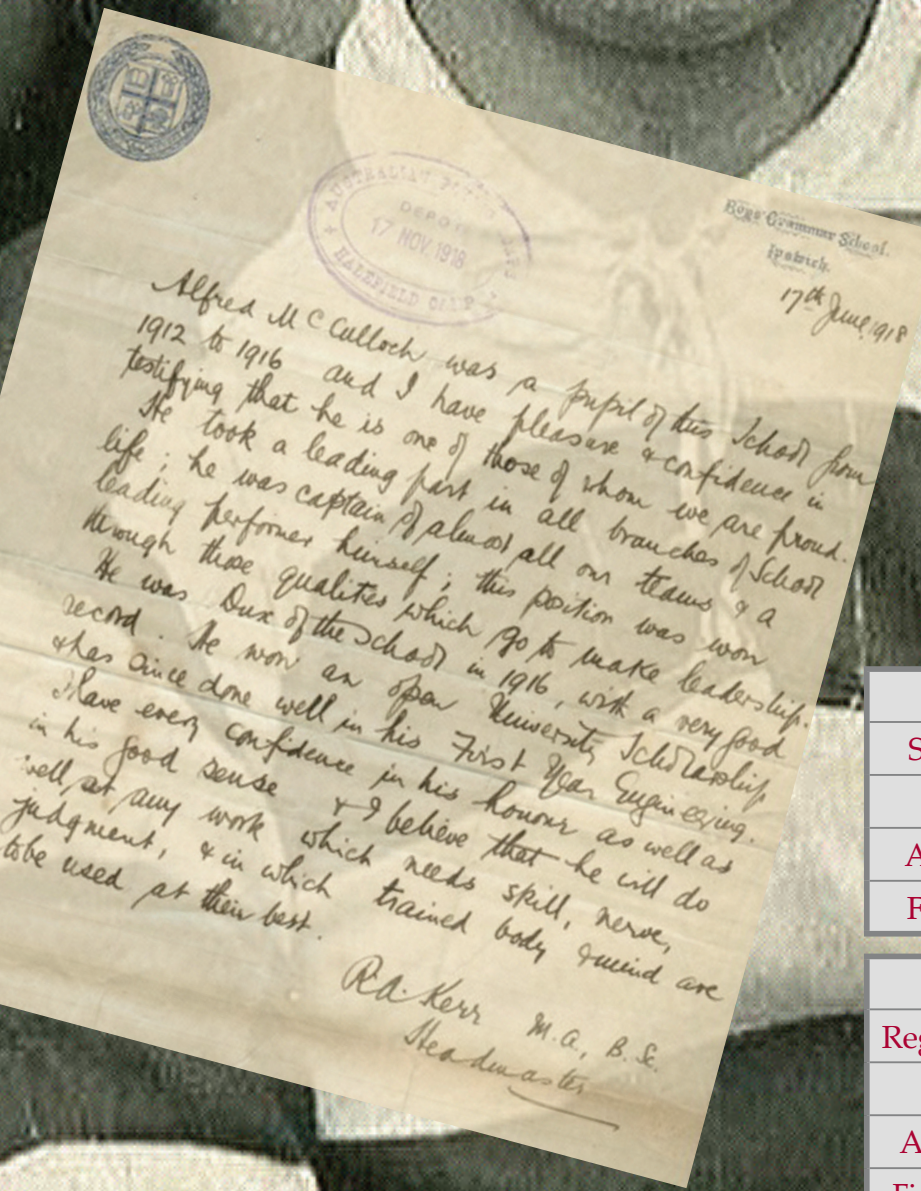 Boys' Grammar School.
Ipswich.
17th June, 1918
AUSTRALIAN
DEPOT
17 NOV 1918
HALEFIELD CAMP
Alfred McCulloch was a pupil of this School from
1912 to 1916 and I have pleasure & confidence in
testifying that he is one of those of whom we are proud.
He took a leading part in all branches of School
life; he was captain of almost all our teams & a
leading performer himself; this position was won
through those qualities which go to make leadership.
He was Dux of the School in 1916, with a very good
record. He won an open University Scholarship
& has since done well in his First Year Engineering.
I have every confidence in his honour as well as
in his good sense & I believe that he will do
well, at any work which needs skill, nerve,
judgment, & in which trained body & mind are
to be used at their best.
R.A. Kerr M.A., B.Sc.
Headmaster
S
A
F
Reg
A
Fi